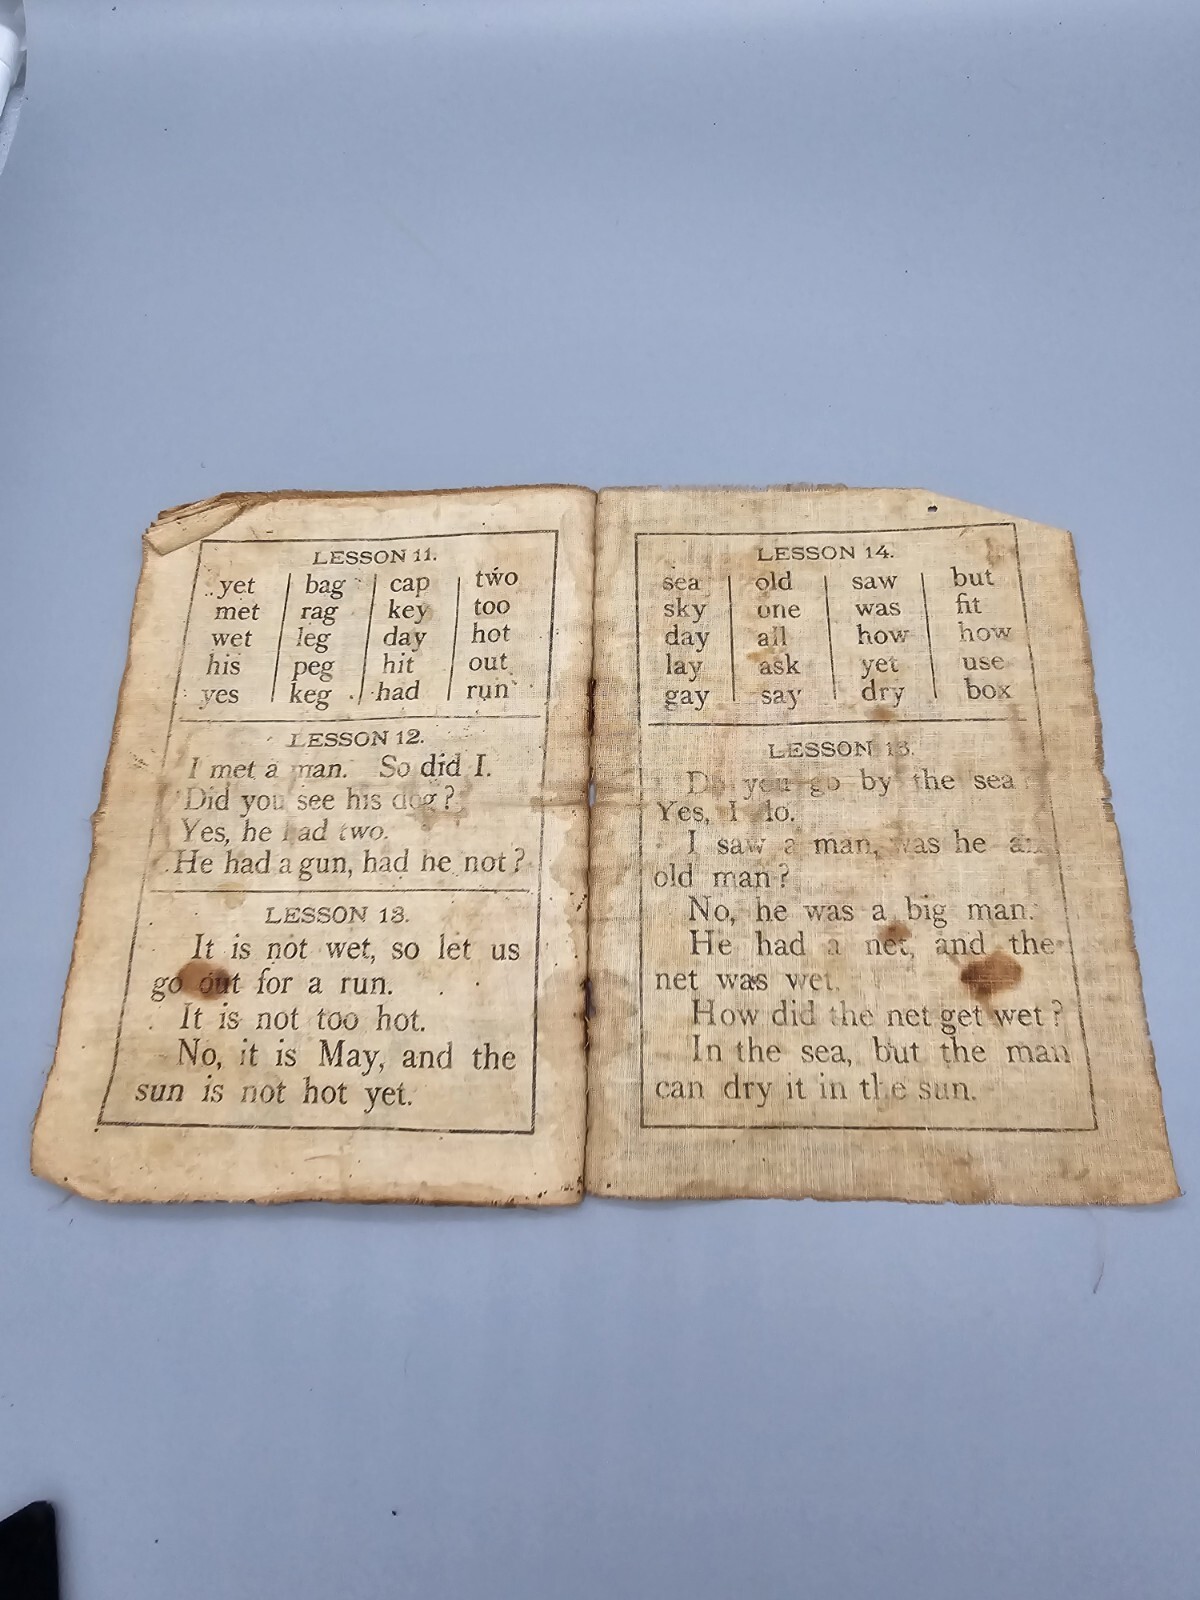 LESSON 11.
yet bag cap two
met rag key too
wet leg day hot
his peg hit out
yes keg had run
LESSON 12.
I met a man. So did I.
Did you see his dog?
Yes, he had two.
He had a gun, had he not?
LESSON 13.
It is not wet, so let us
go out for a run.
It is not too hot.
No, it is May, and the
sun is not hot yet.
LESSON 14.
sea old saw but
sky one was fit
day all how how
lay ask yet use
gay say dry box
LESSON
Do you go by the sea
Yes, I do.
I saw a man, was he an
old man?
No, he was a big man.
He had a net, and the
net was wet.
How did the net get wet?
In the sea, but the man
can dry it in the sun.